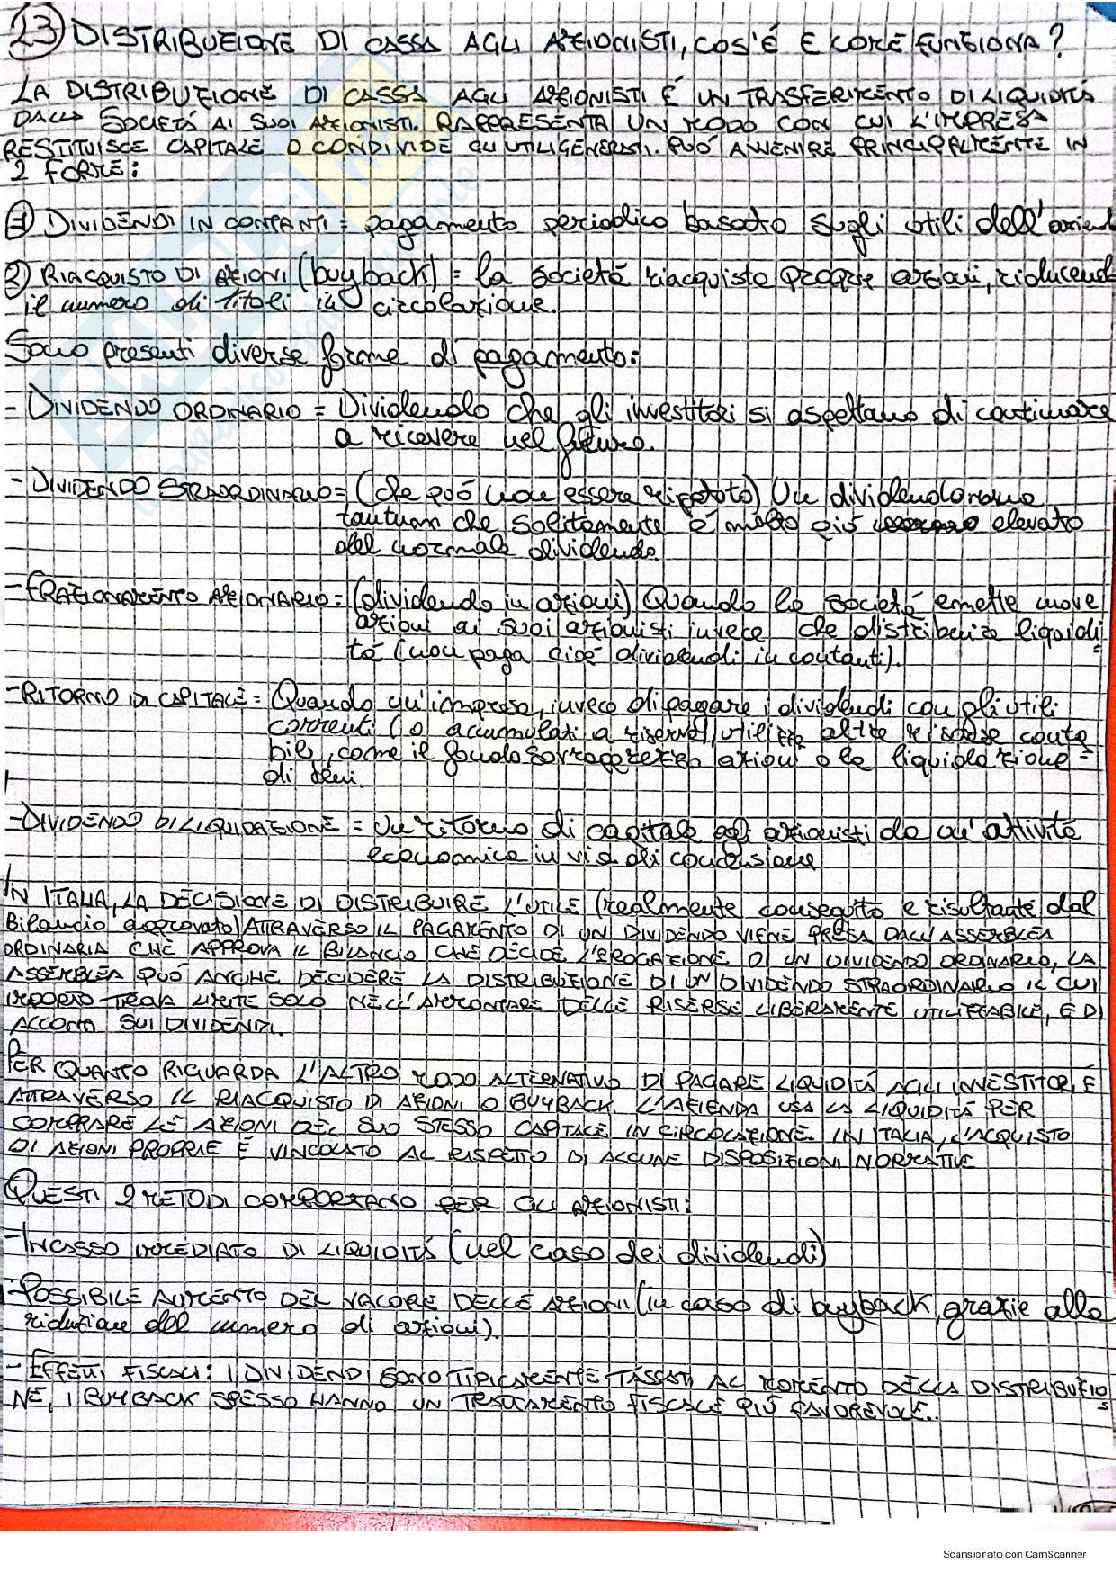 23) DISTRIBUZIONE DI CASSA AGLI AZIONISTI, COS'É E COME FUNZIONA?
LA DISTRIBUZIONE DI CASSA AGLI AZIONISTI É UN TRASFERIMENTO DI LIQUIDITÁ
DALLA SOCIETÁ AI SUOI AZIONISTI. RAPPRESENTA UN MODO CON CUI L'IMPRESA
RESTITUISCE CAPITALE O CONDIVIDE GLI UTILI GENERATI. PUÓ AVVENIRE PRINCIPALMENTE IN
2 FORME:
1) DIVIDENDI IN CONTANTI = pagamento periodico basato sugli utili dell'
2) RIACQUISTO DI AZIONI (buyback) = la societá riacquista proprie azioni, riducend
il numero di titoli in circolazione.
Sono presenti diverse forme di pagamento:
- DIVIDENDO ORDINARIO = Dividendo che gli investitori si aspettano di continuare
a ricevere nel futuro.
- DIVIDENDO STRAORDINARIO = (che puó non essere ripetuto) Un dividendo
tantum che solitamente é molto piú elevato
del normale dividendo.
- FRAZIONAMENTO AZIONARIO = (dividendo in azioni) Quando la societá emette nuove
azioni ai suoi azionisti invece che distribuire liquidi
tá (non paga cioé dividendi in contanti).
- RITORNO DI CAPITALE = Quando un'impresa, invece di pagare i dividendi con gli utili
correnti (o accumulati a riserva) utilizza altre risorse conta
bili, come il fondo sovrapprezzo azioni o la liquidazione
di beni.
- DIVIDENDO DI LIQUIDAZIONE = Un ritorno di capitale agli azionisti da un'attivitá
economica in via di conclusione
IN ITALIA, LA DECISIONE DI DISTRIBUIRE L'UTILE (realmente conseguito e risultante dal
Bilancio approvato) ATTRAVERSO IL PAGAMENTO DI UN DIVIDENDO VIENE PRESA DALL'ASSEMBLEA
ORDINARIA CHE APPROVA IL BILANCIO CHE DECIDE L'EROGAZIONE DI UN DIVIDENDO ORDINARIO, LA
ASSEMBLEA PUÓ ANCHE DECIDERE LA DISTRIBUZIONE DI UN DIVIDENDO STRAORDINARIO IL CUI
IMPORTO TROVA LIMITE SOLO NELL'AMMONTARE DELLE RISERSE LIBERAMENTE UTILIZZABILE, E DI
ACCONTI SUI DIVIDENZI.
PER QUANTO RIGUARDA L'ALTRO MODO ALTERNATIVO DI PAGARE LIQUIDITÁ AGLI INVESTITORI É
ATTRAVERSO IL RIACQUISTO DI AZIONI O BUYBACK. L'AZIENDA USA LA LIQUIDITÁ PER
COMPRARE LE AZIONI DEL SUO STESSO CAPITALE IN CIRCOLAZIONE. IN ITALIA, L'ACQUISTO
DI AZIONI PROPRIE É VINCOLATO AL RISPETTO DI ALCUNE DISPOSIZIONI NORMATIVE
QUESTI 2 METODI COMPORTANO PER GLI AZIONISTI:
- INCASSO IMMEDIATO DI LIQUIDITÁ (nel caso dei dividendi)
- POSSIBILE AUMENTO DEL VALORE DELLE AZIONI (in caso di buyback, grazie alla
riduzione del numero di azioni).
- EFFETTI FISCALI: I DIVIDENDI SONO TIPICAMENTE TASSATI AL MOMENTO DELLA DISTRIBUZIO
NE, I BUYBACK SPESSO HANNO UN TRATTAMENTO FISCALE PIÚ FAVOREVOLE.
Scansionato con CamScanner